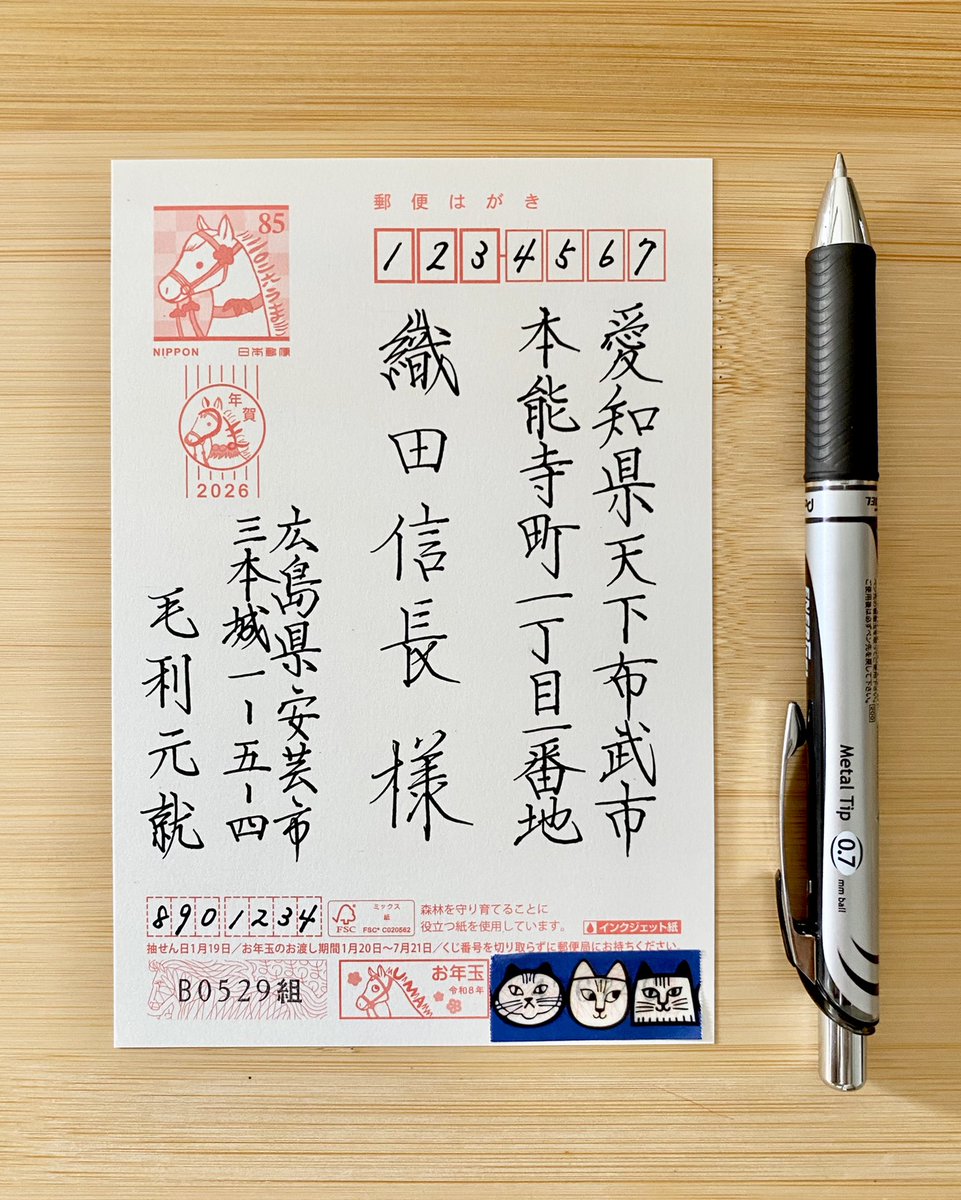 郵便はがき
123-4567
愛知県天下布武市
本能寺町一丁目一番地
織田信長様
85
二〇二六うま
NIPPON 日本郵便
年賀
2026
広島県安芸市
三本城一ー五ー四
毛利元就
8901234
FSC
ミックス
紙
FSC® C020562
森林を守り育てることに
役立つ紙を使用しています。
インクジェット紙
抽せん日1月19日/お年玉のお渡し期間1月20日〜7月21日/くじ番号を切り取らずに郵便局にお持ちください。
B0529組
お年玉
令和8年
Metal Tip 0.7 mm ball